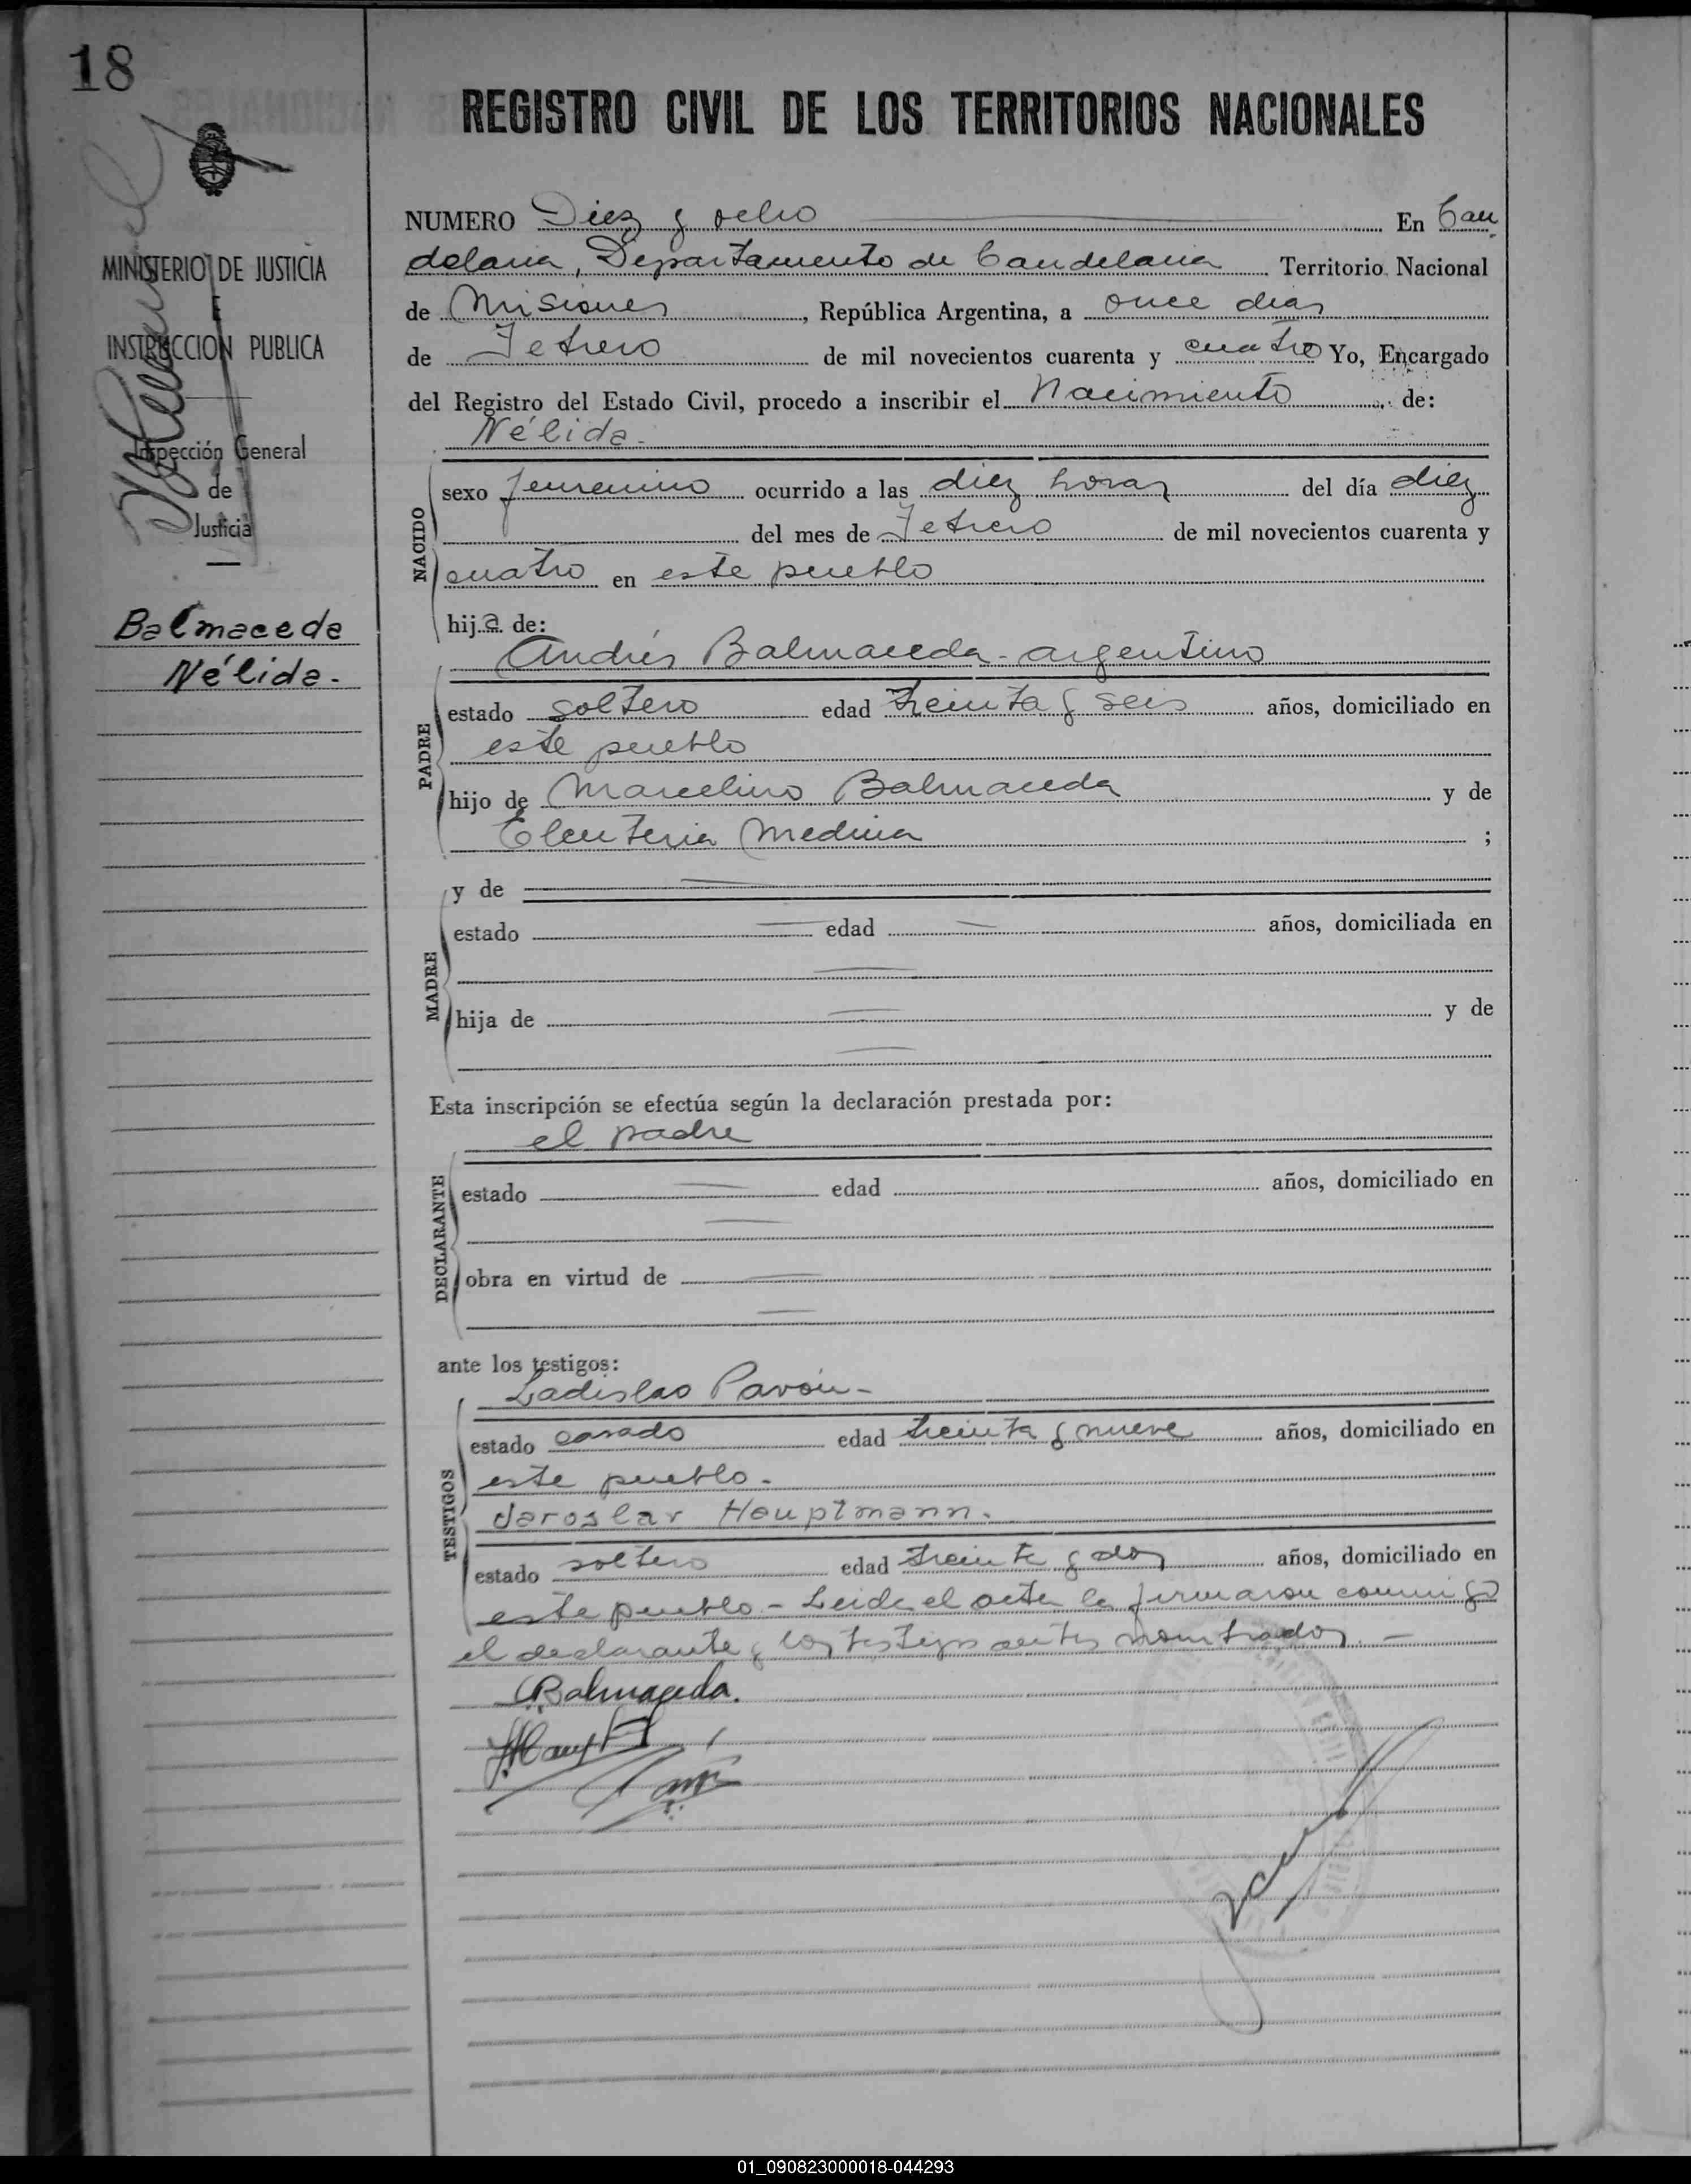 18
REGISTRO CIVIL DE LOS TERRITORIOS NACIONALES
MINISTERIO DE JUSTICIA
E
INSTRUCCION PUBLICA
Inspección General
de
Justicia
Balmaceda
Nélida.
NUMERO Diez y ocho En Can
delaria, Departamento de Candelaria Territorio Nacional
de Misiones, República Argentina, a once dias
de Febrero de mil novecientos cuarenta y cuatro Yo, Encargado
del Registro del Estado Civil, procedo a inscribir el Nacimiento de:
Nélida.
NACIDO
sexo femenino ocurrido a las diez horas del día diez
del mes de Febrero de mil novecientos cuarenta y
cuatro en este pueblo
hija de:
Andrés Balmaceda - argentino
PADRE
estado soltero edad treinta y seis años, domiciliado en
este pueblo
hijo de Marcelino Balmaceda y de
Eleuteria Medina ;
MADRE
y de
estado edad años, domiciliada en
hija de y de
Esta inscripción se efectúa según la declaración prestada por:
el padre
DECLARANTE
estado edad años, domiciliado en
obra en virtud de
ante los testigos:
Ladislao Pavón -
TESTIGOS
estado casado edad treinta y nueve años, domiciliado en
este pueblo.
Jaroslav Hauptmann.
estado soltero edad treinta y dos años, domiciliado en
este pueblo - Leida el acta la firmaron conmigo
el declarante y los testigos antes nombrados. -
Balmaceda.
01_090823000018-044293